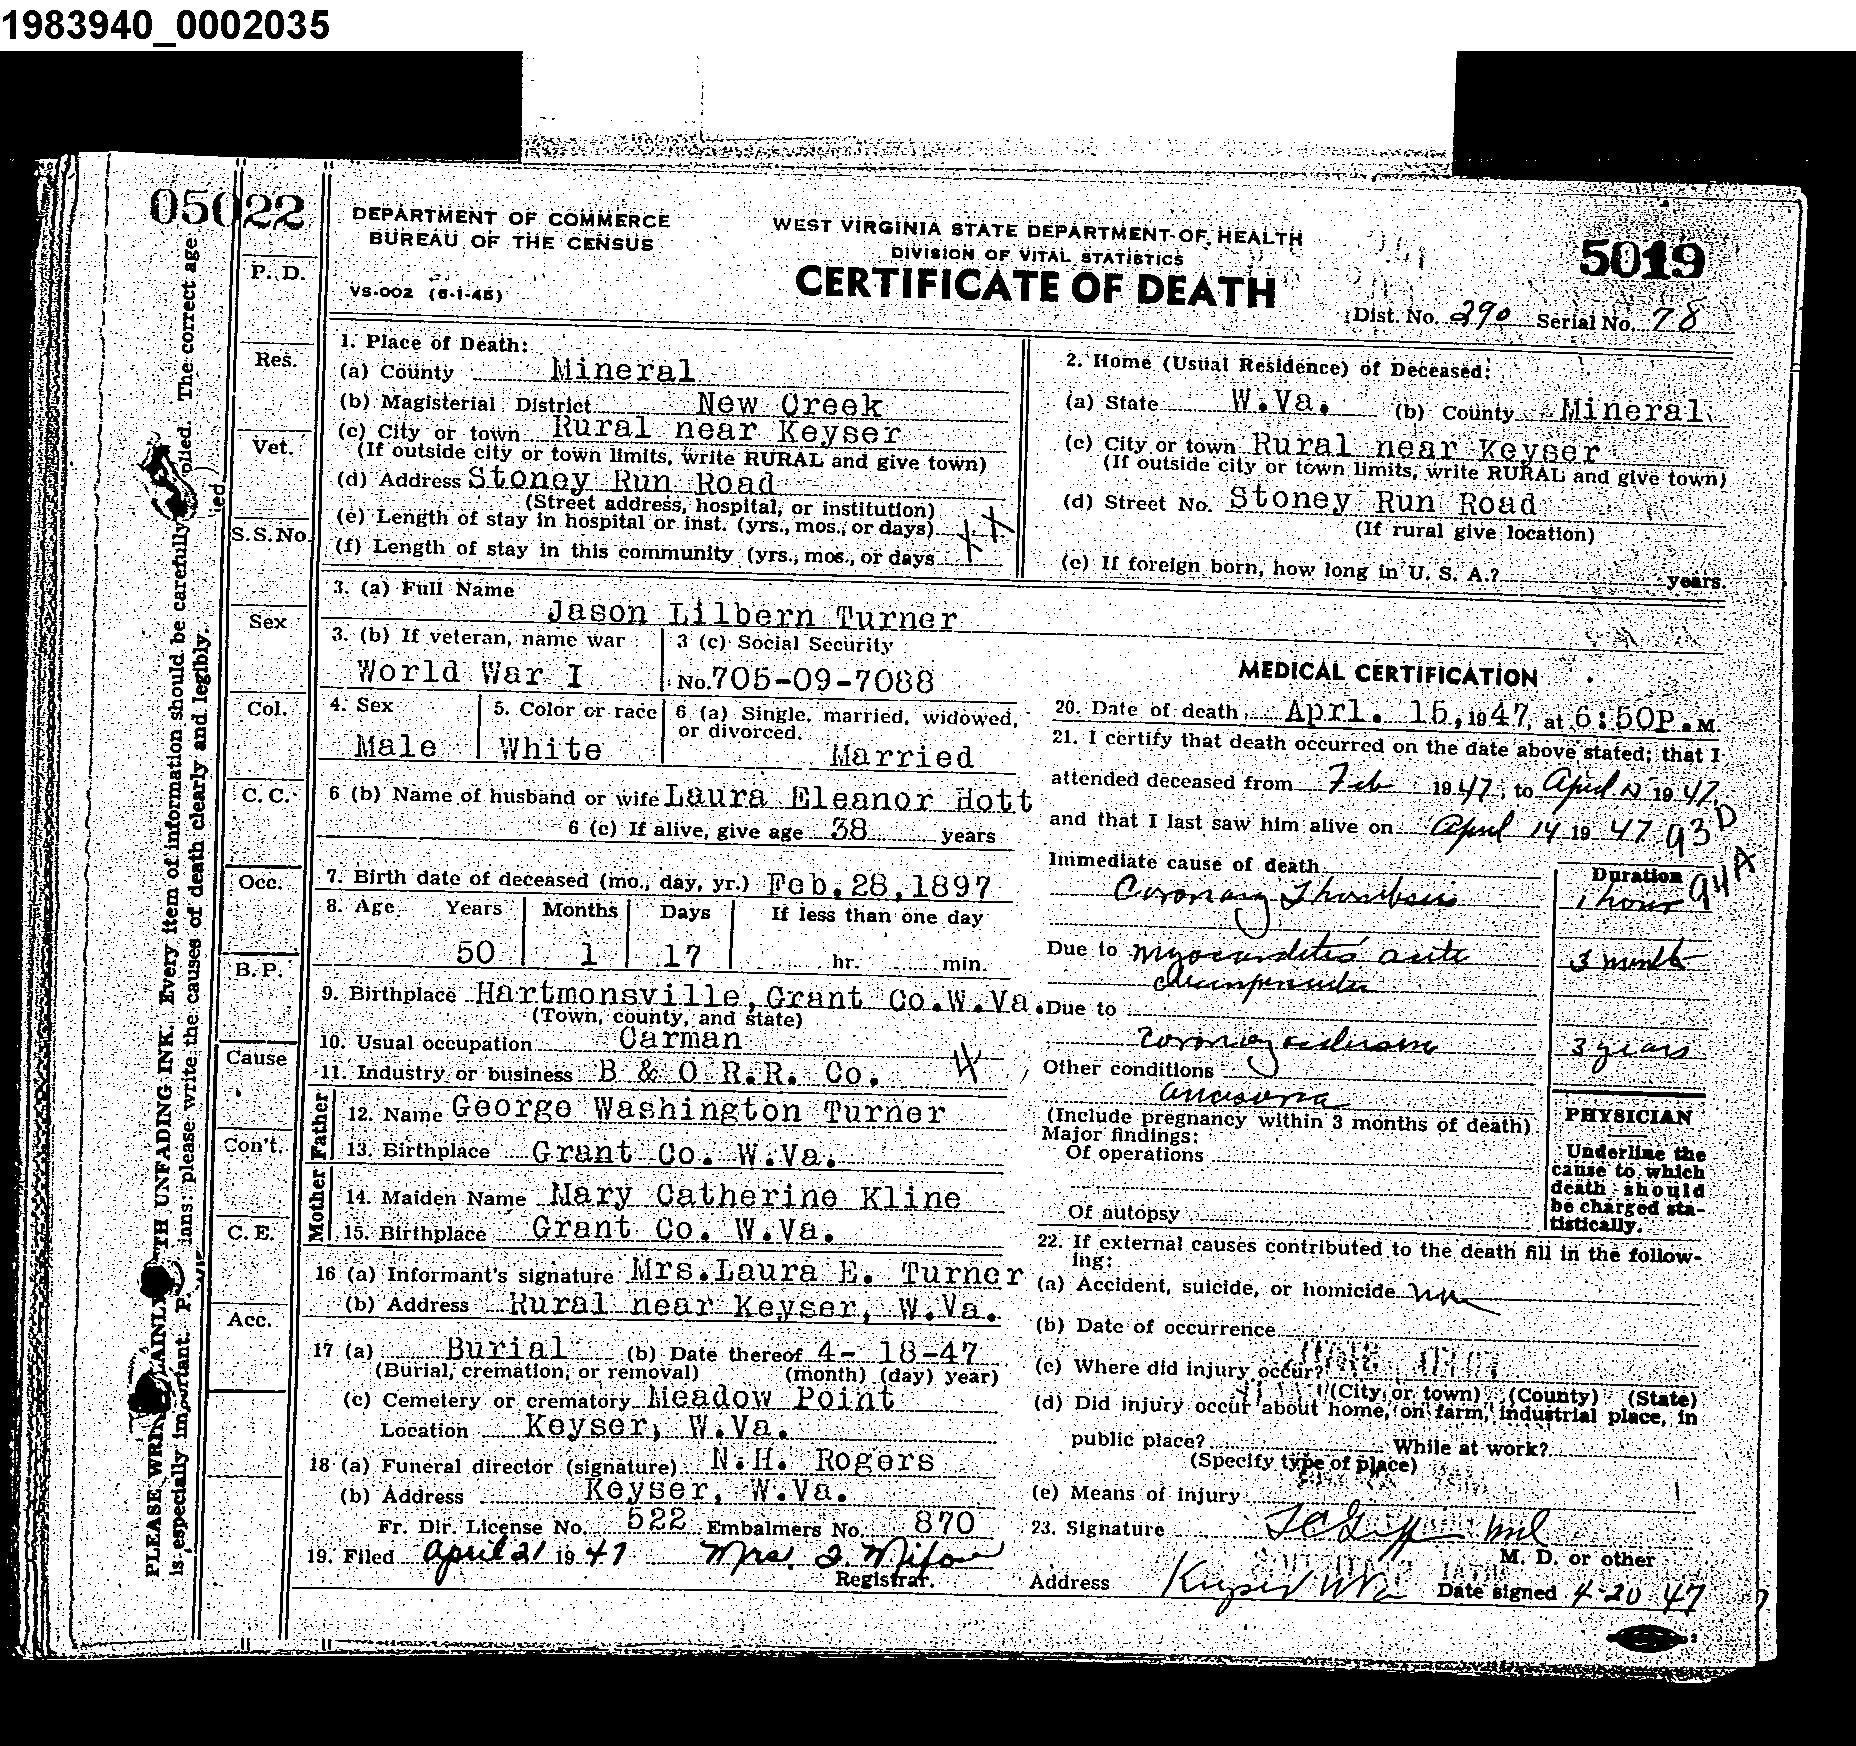 1983940_0002035
05022
DEPARTMENT OF COMMERCE
BUREAU OF THE CENSUS
VS-002 (6-1-45)
WEST VIRGINIA STATE DEPARTMENT OF HEALTH
DIVISION OF VITAL STATISTICS
CERTIFICATE OF DEATH
5019
Dist. No. 290 Serial No. 78
P. D.
Res.
Vet.
S.S.No.
Sex
Col.
C. C.
Occ.
B. P.
Cause
Con't.
C. E.
Acc.
PLEASE WRITE PLAINLY WITH UNFADING INK. Every item of information should be carefully supplied. The correct age
is especially important. Physicians: please write the causes of death clearly and legibly.
1. Place of Death:
(a) County Mineral
(b) Magisterial District New Creek
(c) City or town Rural near Keyser
(If outside city or town limits, write RURAL and give town)
(d) Address Stoney Run Road
(Street address, hospital, or institution)
(e) Length of stay in hospital or inst. (yrs., mos., or days)
(f) Length of stay in this community (yrs., mos., or days
2. Home (Usual Residence) of Deceased:
(a) State W.Va. (b) County Mineral
(c) City or town Rural near Keyser
(If outside city or town limits, write RURAL and give town)
(d) Street No. Stoney Run Road
(If rural give location)
(e) If foreign born, how long in U. S. A.? years.
3. (a) Full Name
Jason Lilbern Turner
3. (b) If veteran, name war
World War I
3 (c) Social Security
No. 705-09-7088
4. Sex
Male
5. Color or race
White
6 (a) Single, married, widowed,
or divorced.
Married
6 (b) Name of husband or wife Laura Eleanor Hott
6 (c) If alive, give age 38 years
7. Birth date of deceased (mo., day, yr.) Feb.28,1897
8. Age Years Months Days If less than one day
50 1 17 hr. min.
9. Birthplace Hartmonsville, Grant Co.W.Va.
(Town, county, and state)
10. Usual occupation Carman
11. Industry or business B & O R.R. Co.
Father
12. Name George Washington Turner
13. Birthplace Grant Co. W.Va.
Mother
14. Maiden Name Mary Catherine Kline
15. Birthplace Grant Co. W.Va.
16 (a) Informant's signature Mrs.Laura E. Turner
(b) Address Rural near Keyser, W.Va.
17 (a) Burial (b) Date thereof 4- 18-47
(Burial, cremation, or removal) (month) (day) year)
(c) Cemetery or crematory Meadow Point
Location Keyser, W.Va.
18 (a) Funeral director (signature) N.H. Rogers
(b) Address Keyser, W.Va.
Fr. Dir. License No. 522 Embalmers No. 870
19. Filed April 21 1947 Mrs.
Registrar.
MEDICAL CERTIFICATION
20. Date of death, Aprl. 15, 1947, at 6:50P.M.
21. I certify that death occurred on the date above stated; that I
attended deceased from Feb 1947, to April 1947,
and that I last saw him alive on April 14 19 47 93D
Immediate cause of death Duration 94A
Coronary Thrombosis 1 hour
Due to myocarditis acute 3 month
Due to
Coronary 3 years
Other conditions
(Include pregnancy within 3 months of death)
Major findings:
Of operations
Of autopsy
PHYSICIAN
Underline the
cause to which
death should
be charged sta-
tistically.
22. If external causes contributed to the death fill in the follow-
ing:
(a) Accident, suicide, or homicide
(b) Date of occurrence
(c) Where did injury occur?
(City or town) (County) (State)
(d) Did injury occur about home, on farm, industrial place, in
public place? While at work?
(Specify type of place)
(e) Means of injury
23. Signature
M. D. or other
Address Keyser WVa Date signed 4-20 47